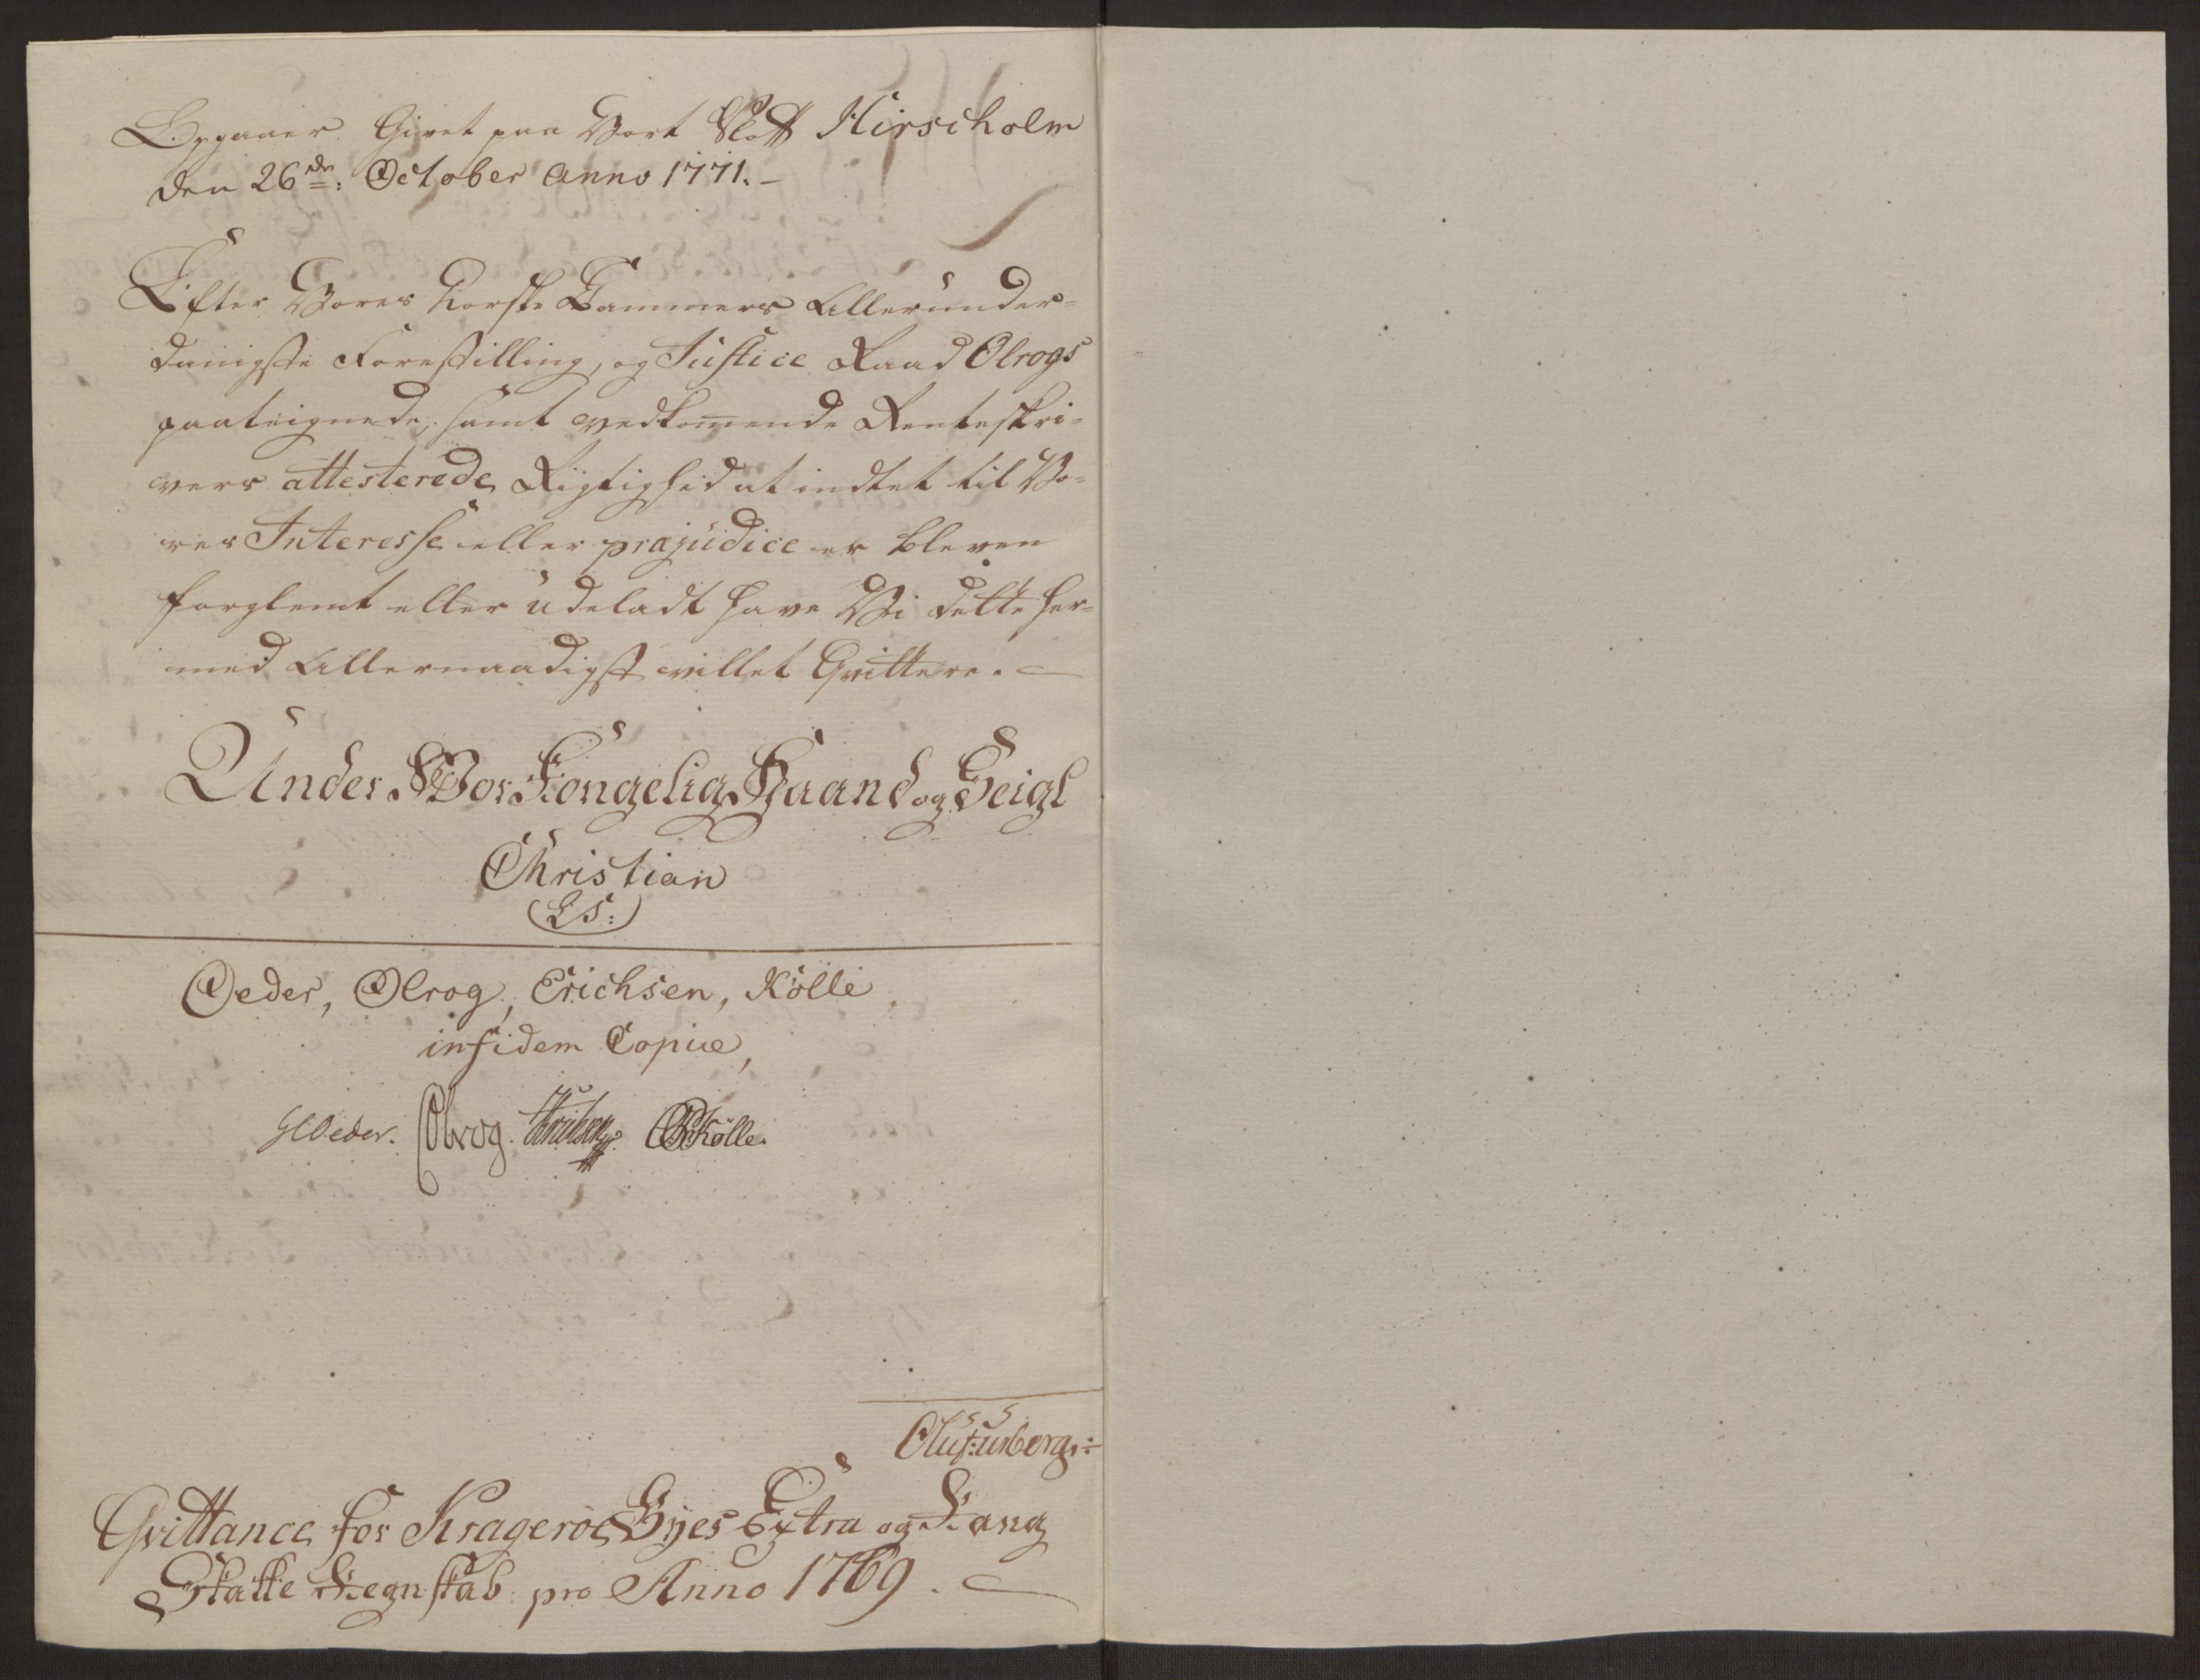 Opgaaer. Givet paa Vort Slott Hirscholm
den 26de: October Anno 1771.-
Efter Vores Norske Cammers Allerunder-
danigste Forestilling, og Justice Raad Olrogs
paateignede, samt vedkommende Renteskri-
vers attesterede Rigtighed at indtet til Vo-
res Interesse eller præjudice er bleven
forglemt eller udeladt have Vi dette her-
med Allernaadigst villet Qvittere.
Under Vor Kongelig Haand og Seigl
Christian
(LS:)
Oeder, Olrog, Erichsen, Kölle
in fidem Copiæ,
GCOeder. Olrog. Erichsen. Kölle.
Qvittance for Krageröe Byes Extra og Rang
Skatte Regnskab pro Anno 1769.